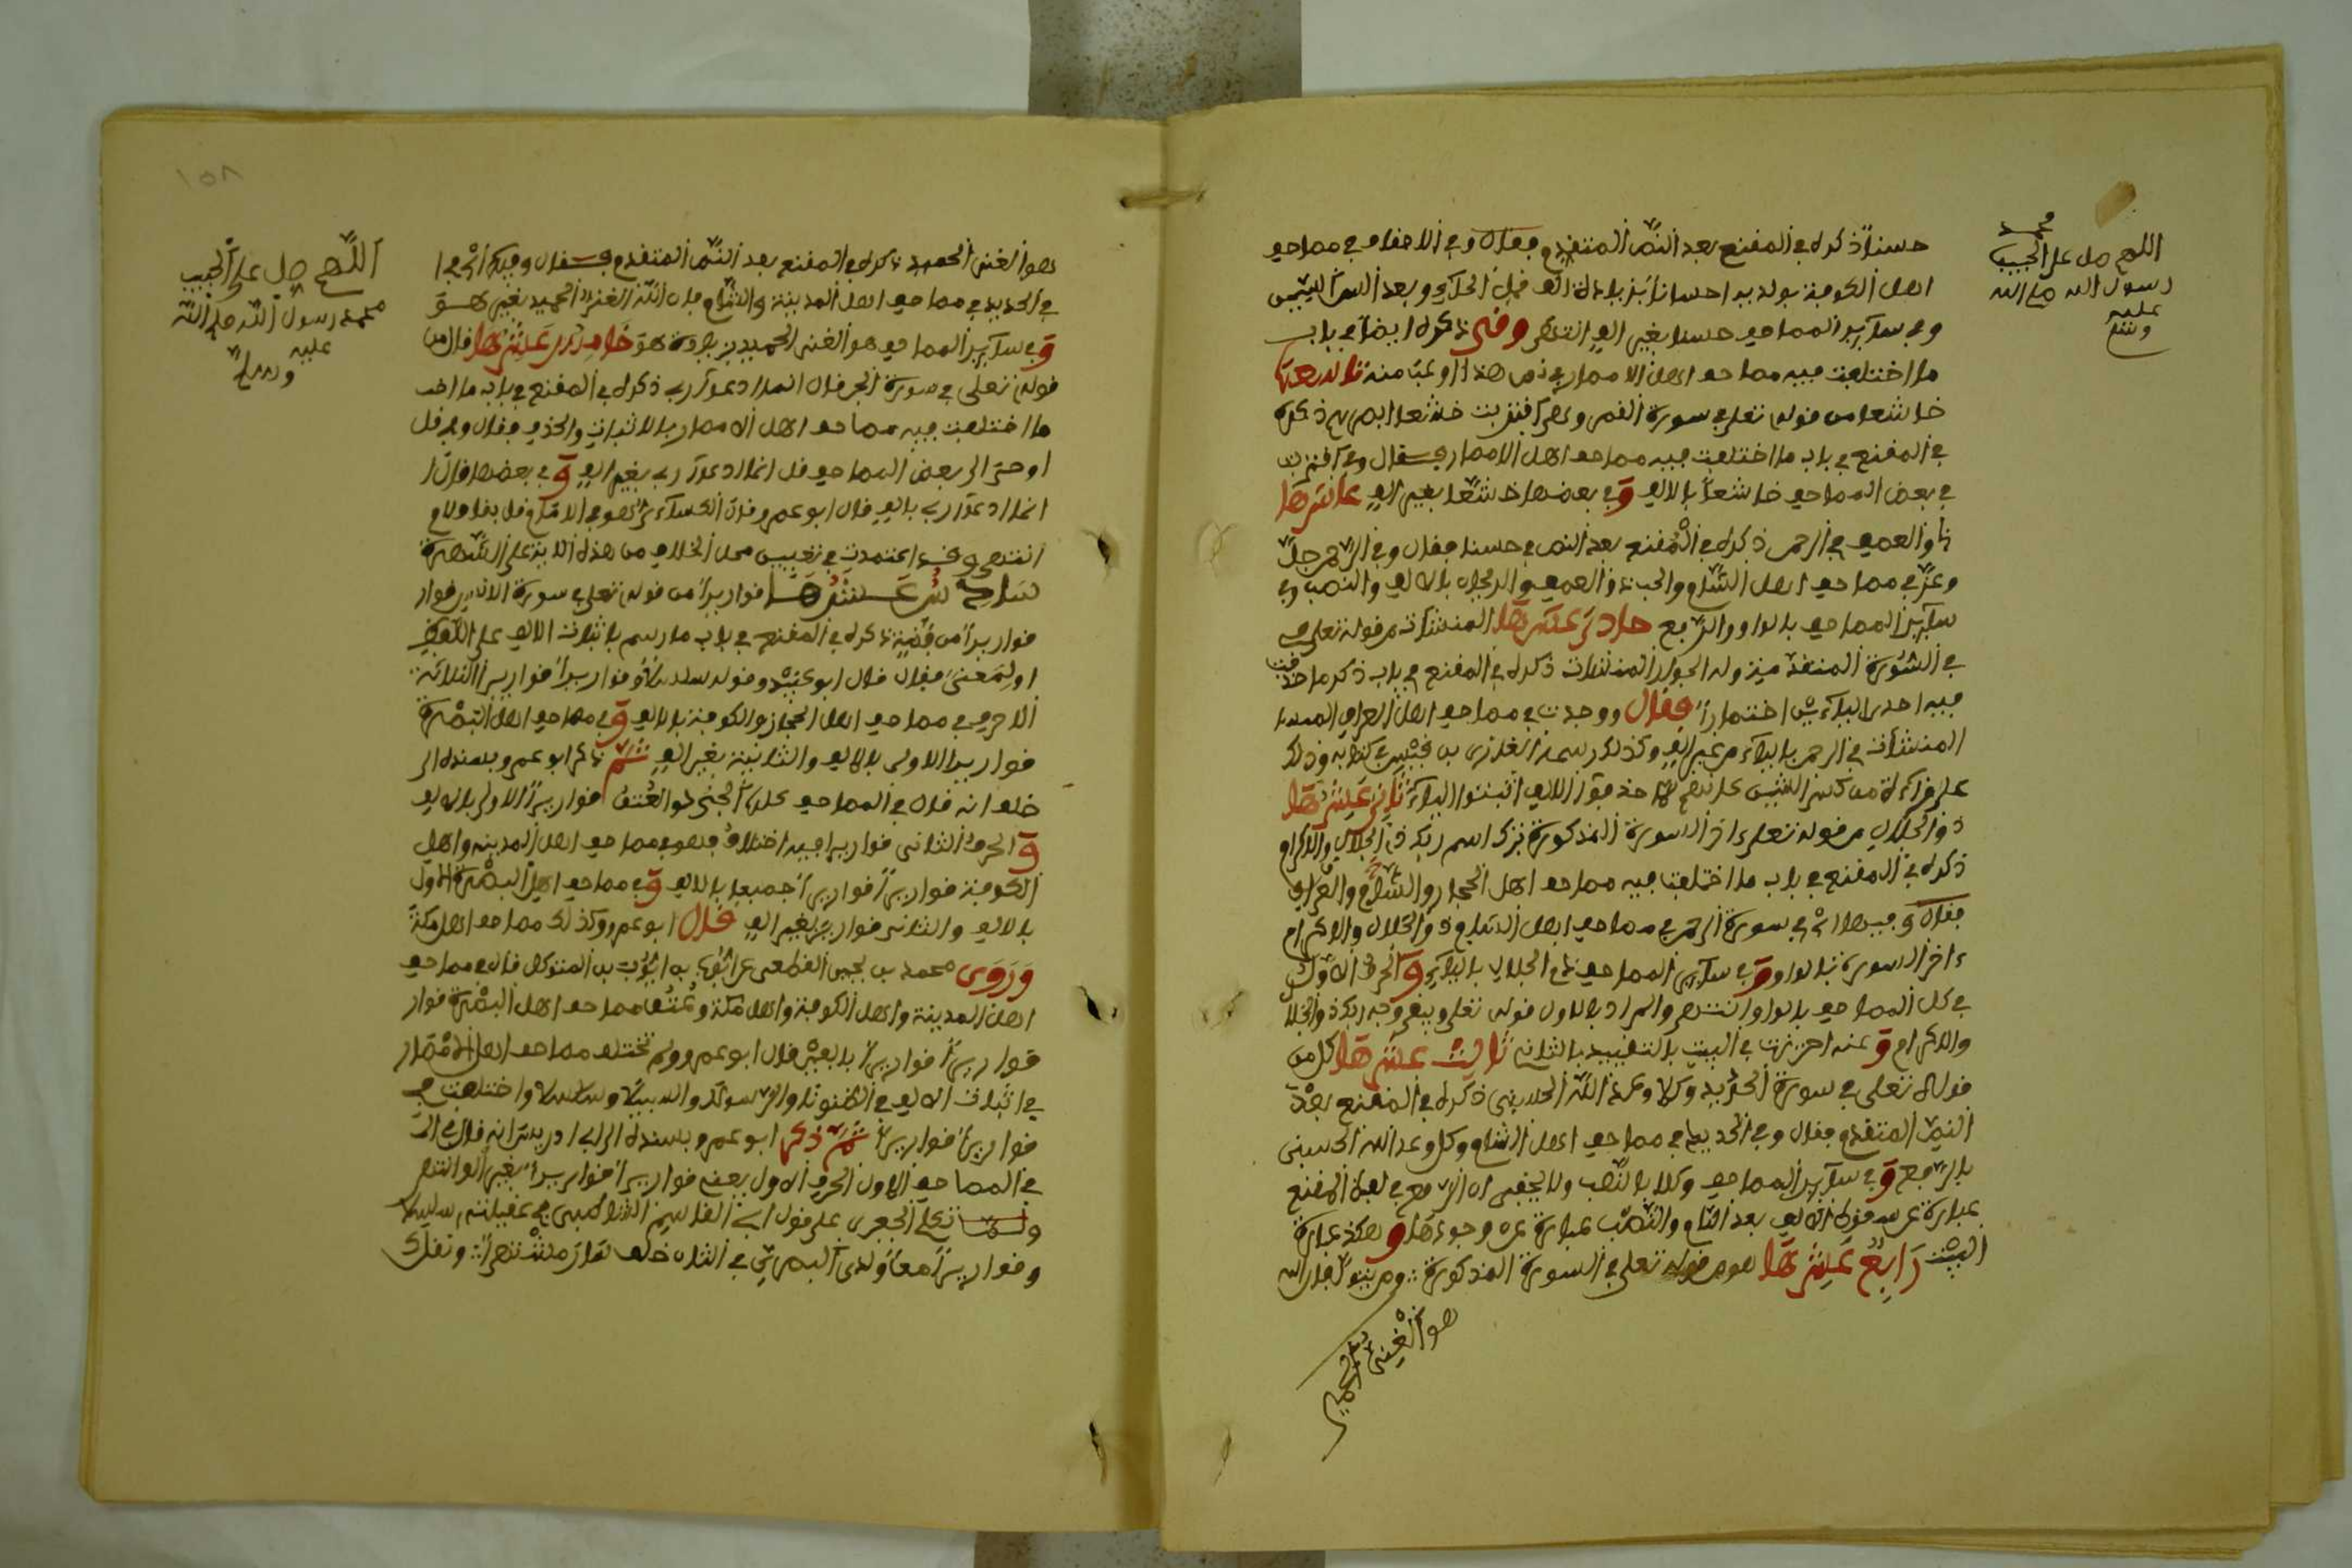 اللهم صل على الحبيب
محمد
رسول الله صلى الله
عليه
وسلم
حسنا ذكره في المقنع بعد النص المتقدم فقال وفي الاحقاف في مصاحف
اهل الكوفة بولديه احسانا بزيادة الف قبل الحاء وبعد السين
وفي ساير المصاحف حسنا بغير الف انتهى وفى ذكره ايضا في باب
ما اختلفت فيه مصاحف اهل الامصار
خاشعا من قوله تعلى في سورة القمر وهى اقتربت خاشعا ابصرهم ذكره
في المقنع في باب ما اختلفت فيه مصاحف اهل الامصار فقال وفي اقتربت
في بعض المصاحف خاشعا بالالف وفي بعضها خشعا بغير الف عاشرها
ذا العصف في الرحمن ذكره في المقنع بعد النص في حسنا فقال وفي الرحمن جل
وعز في مصاحف اهل الشام والحب ذا العصف والريحان بالالف والنصب وفي
ساير المصاحف بالواو والرفع حادي عشرها المنشئات من قوله تعلى
في السورة المتقدمة وله الجوار المنشئات ذكره في المقنع في باب ذكر ما حذفت
فيه احدى الياءين اختصارا فقال ووجدت في مصاحف اهل العراق
المنشئات في الرحمن بالياء من غير الف وكذلك رسمه الغازي بن قيس في كتابه وذلك
على قراءة من كسر الشين حذفوا الالف اثبتوا الياء ثاني عشرها
ذو الجلال من قوله تعلى ءاخر السورة المذكورة تبرك اسم ربك ذي الجلال والاكرام
ذكره في المقنع في باب ما اختلفت فيه مصاحف اهل الحجاز والشام والعراق
فقال وفيها اي في سورة الرحمن في مصاحف اهل الشام ذو الجلال والاكرام
ءاخر السورة بالواو وفي ساير المصاحف ذي الجلال بالياء والحرف الاول
في كل المصاحف بالواو انتهى والمراد بالاول قوله تعلى ويبقى وجه ربك ذو الجلال
والاكرام وعنه احترزت في البيت بالتقييد بالثاني ثالث عشرها كل من
قوله تعلى في سورة الحديد وكلا وعد الله الحسنى ذكره في المقنع بعد
النص المتقدم فقال وفي الحديد في مصاحف اهل الشام وكل وعد الله الحسنى
بالرفع وفي ساير المصاحف وكلا بالنصب ولا يخفى ان الرفع في لفظ المقنع
عبارة عن سقوط الالف بعد اللام والنصب عبارة عن وجودها وهكذا عبارة
البيت رابع عشرها هو من قوله تعلى في السورة المذكورة ومن يتول فان الله
هو الغنى الحميد
١٥٨
اللهم صل على الحبيب
محمد رسول الله صلى الله
عليه
وسلم
هو الغنى الحميد ذكره في المقنع بعد النص المتقدم فقال وفيها اي
في الحديد في مصاحف اهل المدينة والشام فان الله الغنى الحميد بغير هو
وفي ساير المصاحف هو الغنى الحميد بزيادة هو خامس عشرها قال من
قوله تعلى في سورة الجن قال انما ادعوا ربي ذكره في المقنع في باب
ما اختلفت فيه مصاحف اهل الامصار بالاثبات والحذف فقال وفي قل
اوحى الي بعض المصاحف قل انما ادعوا ربي بغير الف وفي بعضها قال
انما ادعوا ربي بالف قال ابو عمرو قال الكساءي هو في الامام قل بقاف ولام
انتهى وقد اعتمدت في تعيين محل الخلاف من هذه الاية على الشهرة
سادس عشرها قواريرا من قوله تعلى في سورة الانسن قوار
قواريرا من فضة ذكره في المقنع في باب ما رسم باثبات الالف على اللفظ
او لمعنى فقال قال ابو عبيد وقوله سلسلا وقواريرا قواريرا الثلاثة
الاحرف في مصاحف اهل الحجاز والكوفة بالالف وفي مصاحف اهل البصرة
قواريرا الاولى بالالف والثانية بغير الف ثم ذكر ابو عمرو بسنده الى
خلف انه قال في المصاحف كلها الجدد والعتق قواريرا الاولى بالالف
والحرف الثاني قواريرا فيه اختلاف فهو في مصاحف اهل المدينة واهل
الكوفة قواريرا قواريرا جميعا بالالف وفي مصاحف اهل البصرة الاول
بالالف والثاني قوارير بغير الف قال ابو عمرو وكذلك مصاحف اهل مكة
وروى محمد بن يحيى القطعي عن ايوب بن المتوكل قال في مصاحف
اهل المدينة واهل الكوفة واهل مكة وعتق مصاحف اهل البصرة قوار
قواريرا قواريرا بالفين قال ابو عمرو ولم تختلف مصاحف اهل الامصار
في اثبات الالف في الظنونا والرسولا والسبيلا وسلسلا واختلفت في
قواريرا قواريرا ثم ذكر ابو عمرو بسنده الى ابي ادريس انه قال
في المصاحف الاول الحرف الاول يعني قواريرا قواريرا بغير الف انتهى
تكلم الجعبرى على قول ابي القاسم الشاطبى في عقيلته سلسلا
وقواريرا معا ولدى البصرى في الثان خلف سار مشتهرا ونقل